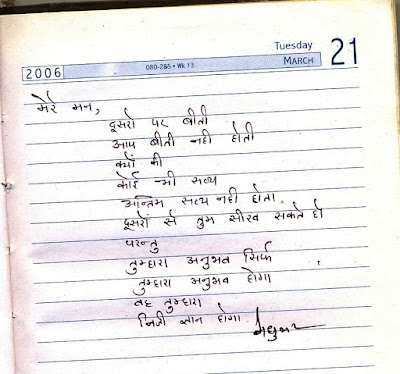 Tuesday
MARCH 21
2006
080-285 • Wk 13
मेरे मन,
दूसरो पर बीती
आप बीती नही होती
क्यों की
कोई भी सत्य
अन्तिम सत्य नही होता.
दूसरों से तुम सीख सकते हो
परन्तु
तुम्हारा अनुभव सिर्फ
तुम्हारा अनुभव होगा
वह तुम्हारा
निजी ज्ञान होगा